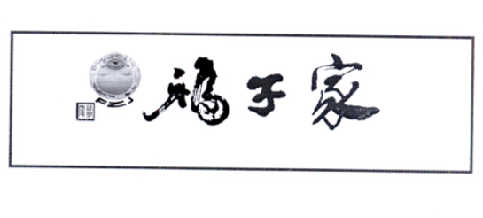 家子福